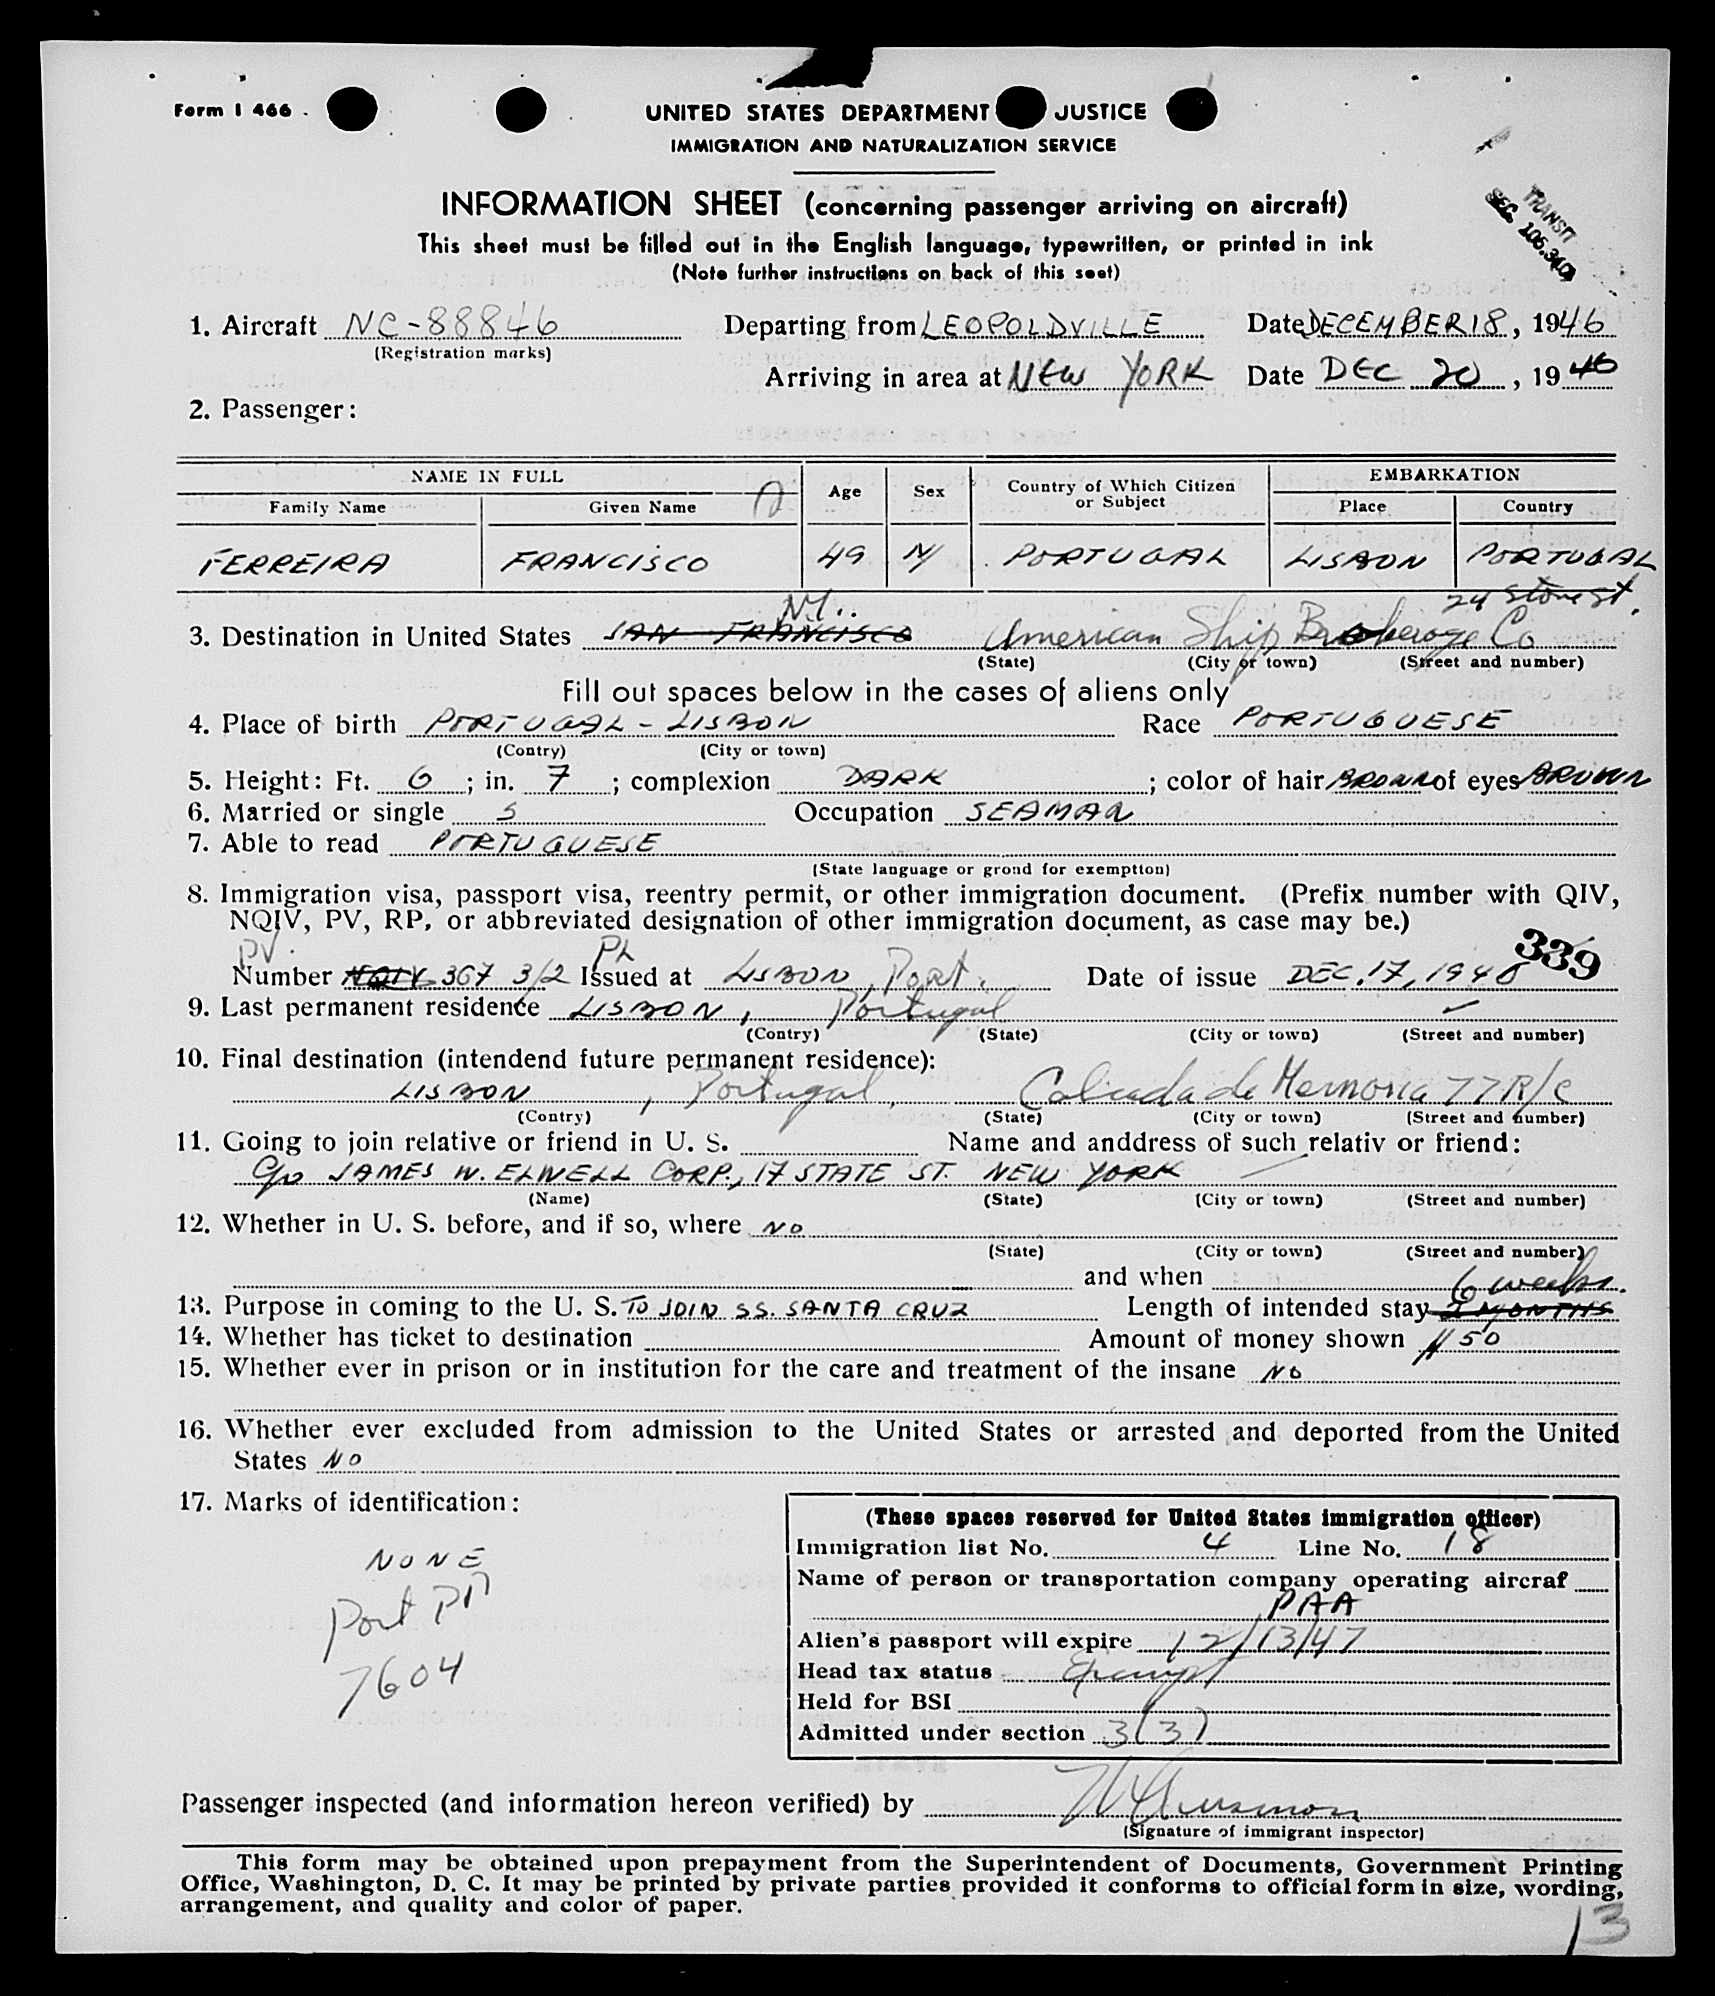 Form I 466
UNITED STATES DEPARTMENT JUSTICE
IMMIGRATION AND NATURALIZATION SERVICE
TRANSIT
SEC. 106.3(0)
INFORMATION SHEET (concerning passenger arriving on aircraft)
This sheet must be filled out in the English language, typewritten, or printed in ink
(Note further instructions on back of this seet)
1. Aircraft NC-88846 Departing from LEOPOLDVILLE Date DECEMBER 18, 1946
(Registration marks)
Arriving in area at NEW YORK Date DEC 20, 1946
2. Passenger:
NAME IN FULL Age Sex Country of Which Citizen or Subject EMBARKATION
Family Name Given Name Place Country
FERREIRA FRANCISCO 49 M PORTUGAL LISBON PORTUGAL
N.Y.. 24 Stone St.
3. Destination in United States SAN FRANCISCO American Ship Brokerage Co
(State) (City or town) (Street and number)
Fill out spaces below in the cases of aliens only
4. Place of birth PORTUGAL - LISBON Race PORTUGUESE
(Contry) (City or town)
5. Height: Ft. 6; in. 7; complexion DARK; color of hair BROWN of eyes BROWN
6. Married or single S Occupation SEAMAN
7. Able to read PORTUGUESE
(State language or grond for exemption)
8. Immigration visa, passport visa, reentry permit, or other immigration document. (Prefix number with QIV,
NQIV, PV, RP, or abbreviated designation of other immigration document, as case may be.)
PV. 339
Number NQIV 367 3/2 Issued at LISBON, Port. Date of issue DEC. 17, 1946
9. Last permanent residence LISBON, Portugal
(Contry) (State) (City or town) (Street and number)
10. Final destination (intendend future permanent residence):
LISBON, Portugal, Calcada de Memoria 77 R/C
(Contry) (State) (City or town) (Street and number)
11. Going to join relative or friend in U. S. Name and anddress of such relativ or friend:
C/o JAMES W. ELWELL CORP., 17 STATE ST. NEW YORK
(Name) (State) (City or town) (Street and number)
12. Whether in U. S. before, and if so, where NO
(State) (City or town) (Street and number)
and when
6 weeks.
13. Purpose in coming to the U. S. TO JOIN SS. SANTA CRUZ Length of intended stay 2 MONTHS
14. Whether has ticket to destination Amount of money shown $50
15. Whether ever in prison or in institution for the care and treatment of the insane NO
16. Whether ever excluded from admission to the United States or arrested and deported from the United
States NO
17. Marks of identification:
NONE
Port PP
7604
(These spaces reserved for United States immigration officer)
Immigration list No. 4 Line No. 18
Name of person or transportation company operating aircraf
PAA
Alien's passport will expire 12/13/47
Head tax status Exempt
Held for BSI
Admitted under section 3(3)
Passenger inspected (and information hereon verified) by
(Signature of immigrant inspector)
This form may be obtained upon prepayment from the Superintendent of Documents, Government Printing
Office, Washington, D. C. It may be printed by private parties provided it conforms to official form in size, wording,
arrangement, and quality and color of paper.
13